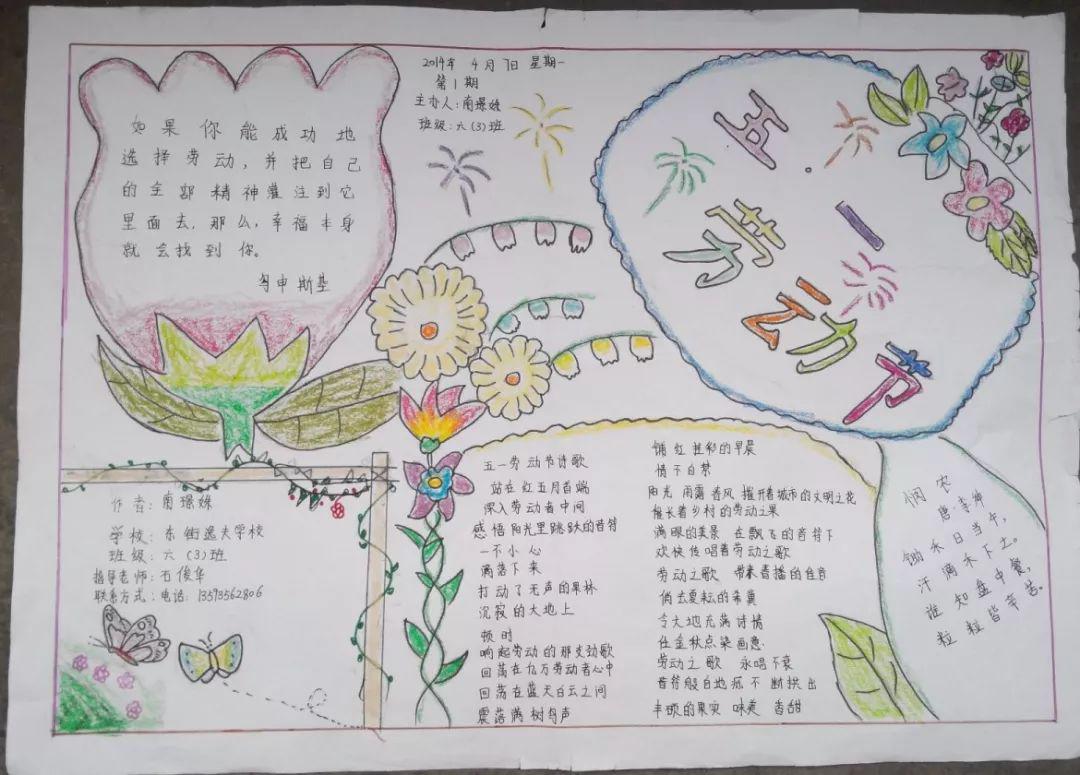 2014年 4月7日 星期一
第1期
主办人:南璟姝
班级:六(3)班
如果你能成功地
选择劳动,并把自己
的全部精神灌注到它
里面去,那么,幸福本身
就会找到你。
五·一
劳动节
五一劳动节诗歌
站在红五月首端
深入劳动者中间
感悟阳光里跳跃的音符
一不小心
滴落下来
打动了无声的果林
沉寂的大地上
顿时
响起劳动的那支劲歌
回荡在亿万劳动者心中
回荡在蓝天白云之间
震落满树鸟声
铺红挂彩的早晨
情不自禁
阳光 雨露 春风 握开着城市的文明之花
催长着乡村的劳动之果
满眼的美景 在飘飞的音符下
欢快传唱着劳动之歌
劳动之歌 带来春播的佳音
倘去夏耘的希冀
令大地充满诗情
任金秋点染画意
劳动之歌 永唱不衰
音符般自地 不断拱出
丰硕的果实 味美 香甜
悯农
唐·李绅
锄禾日当午,
汗滴禾下土。
谁知盘中餐,
粒粒皆辛苦。
作者:南璟姝
学校:东街逸夫学校
班级:六(3)班
指导老师:石俊华
联系方式:电话:13593562806